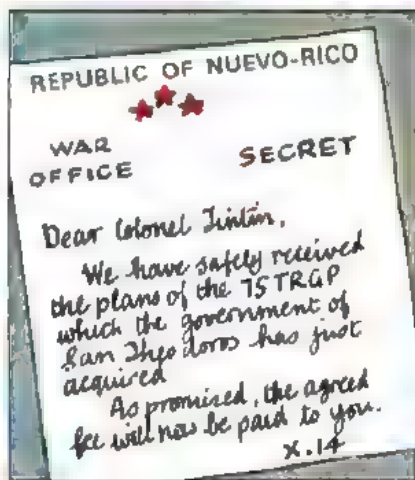 REPUBLIC OF NUEVO-RICO
WAR SECRET
OFFICE
Dear Colonel Tintin,
We have safely received
the plans of the 75 TRGP
which the government of
San Theodoros has just
acquired
As promised, the agreed
fee will now be paid to you.
X.14